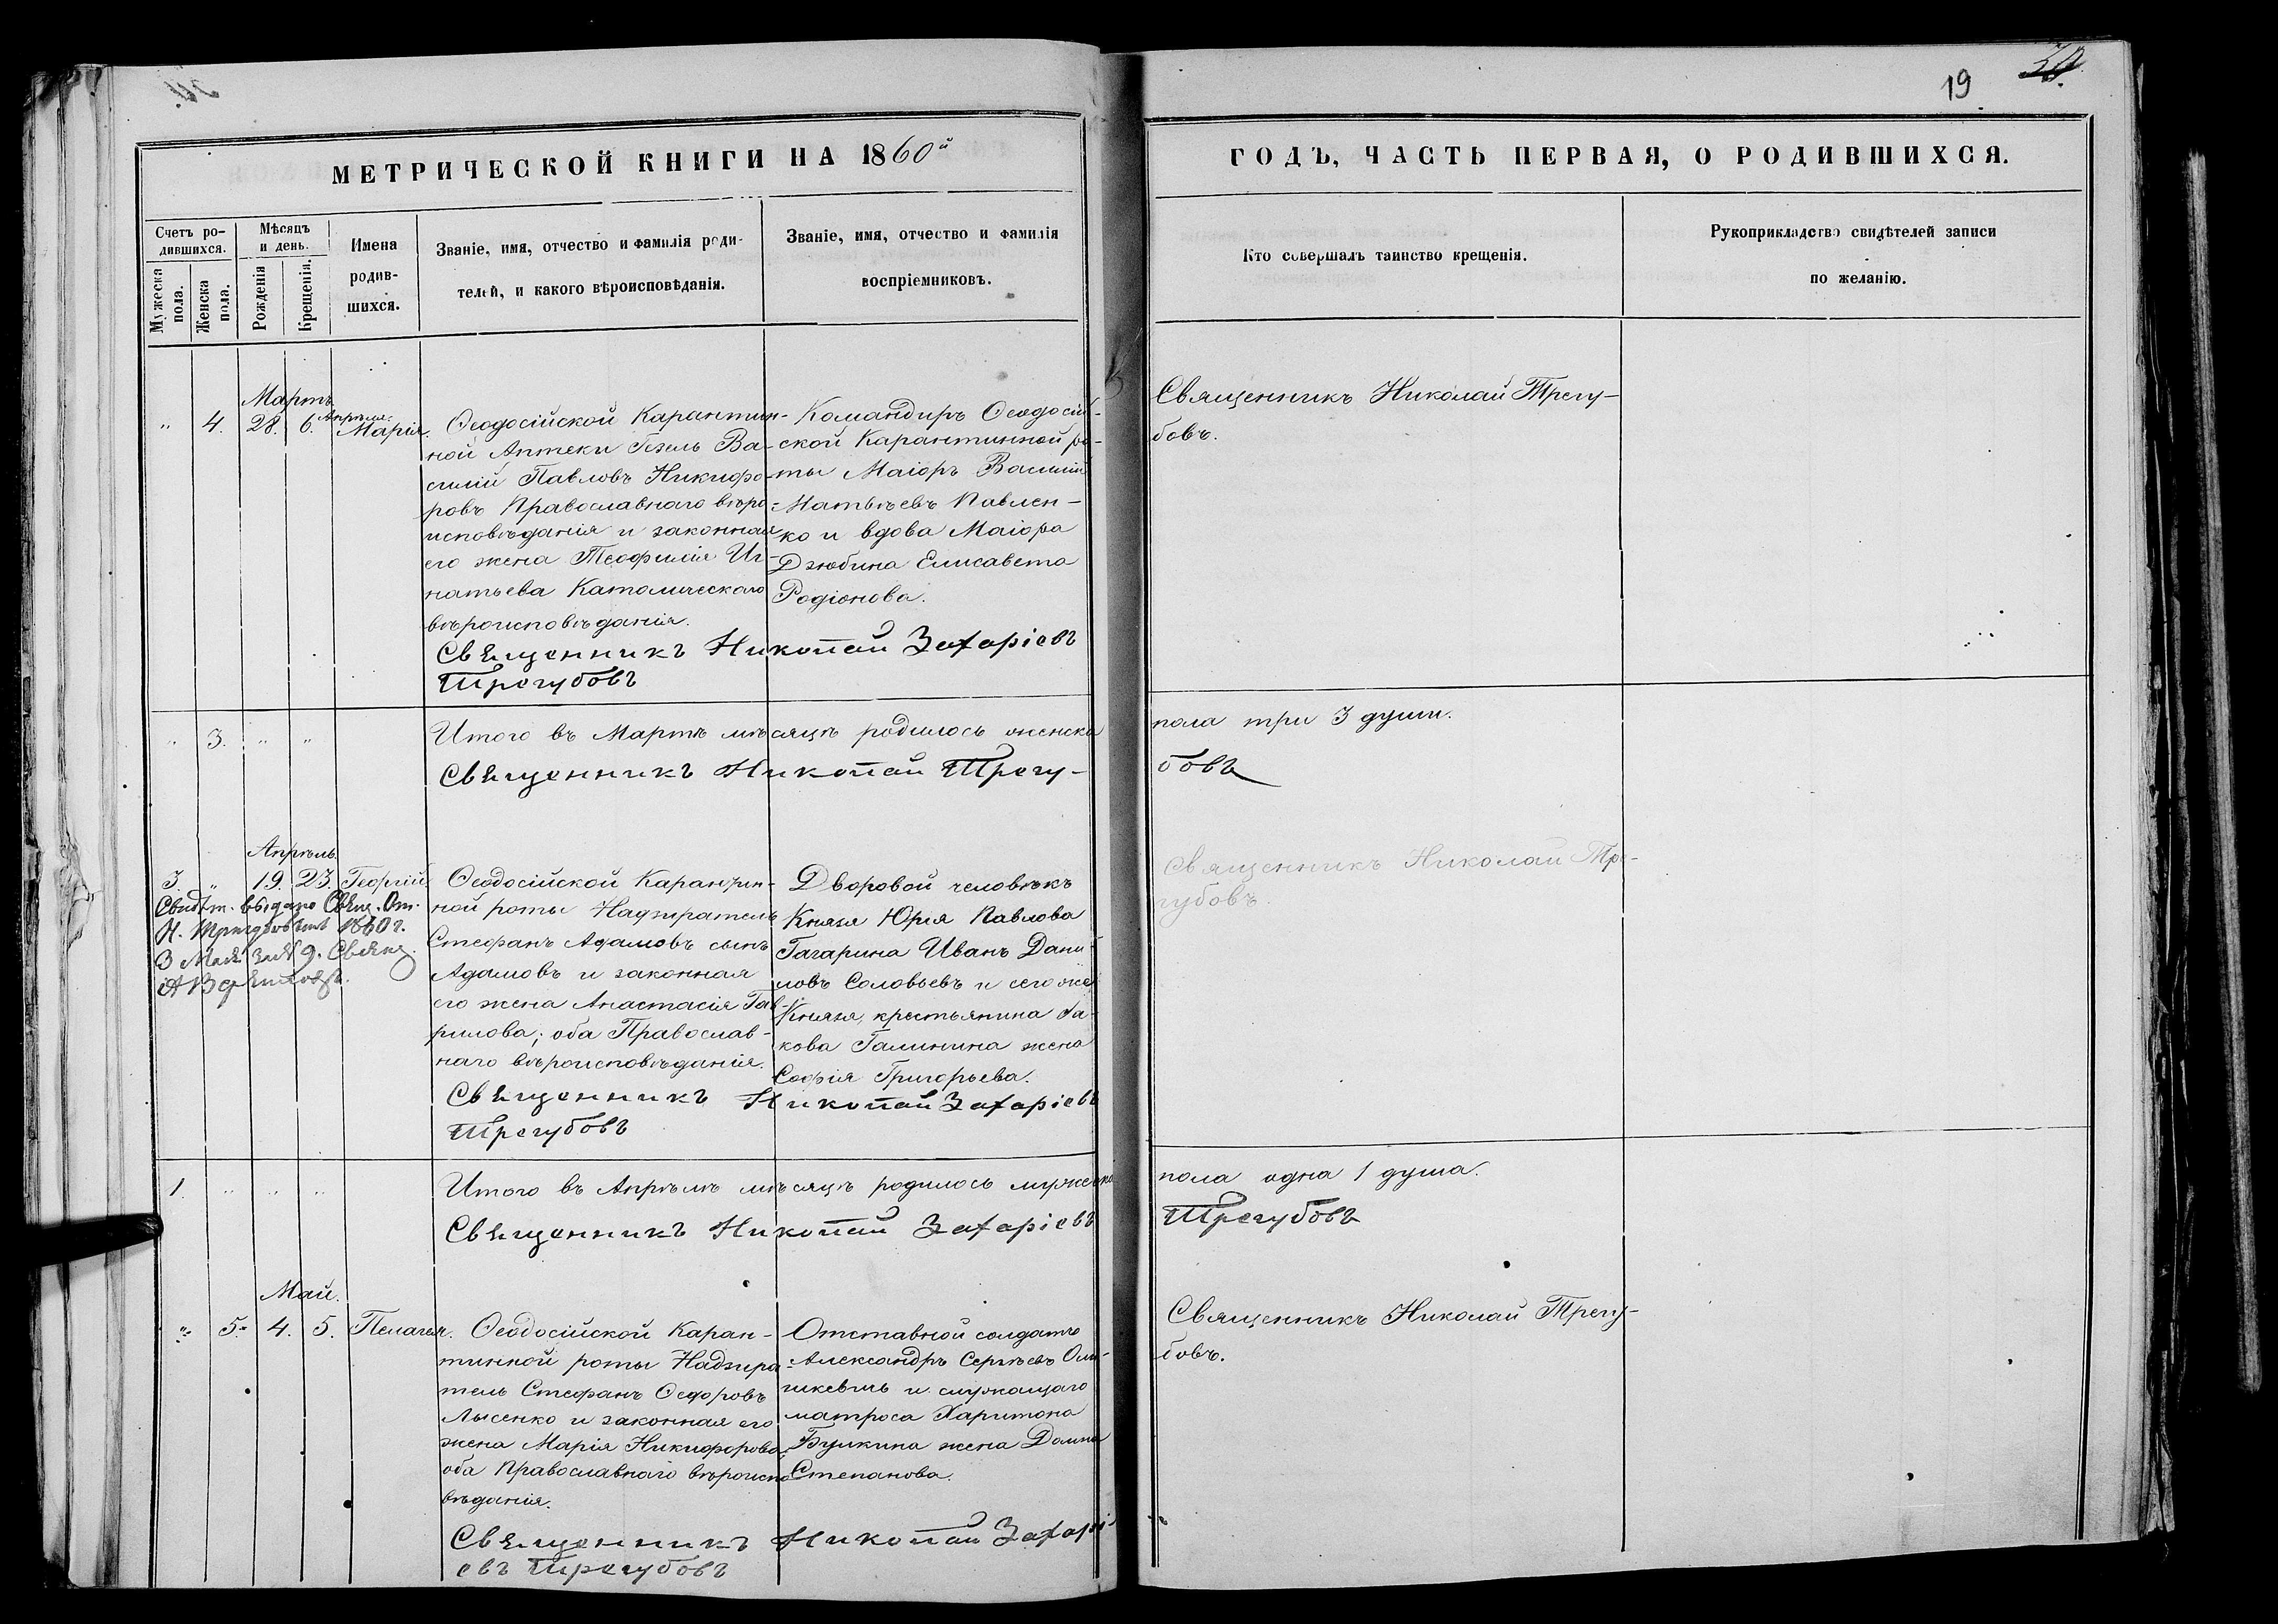 19
30.
МЕТРИЧЕСКОЙ КНИГИ НА 1860й
ГОДЪ, ЧАСТЬ ПЕРВАЯ, О РОДИВШИХСЯ.
Счетъ ро-
дившихся.
Мужеска пола.
Женска пола.
Мѣсяцъ
и день.
Рожденія
Крещенія.
Имена
родив-
шихся.
Званіе, имя, отчество и фамилія роди-
телей, и какого вѣроисповѣданія.
Званіе, имя, отчество и фамилія
воспріемниковъ.
Кто совершалъ таинство крещенія.
Рукоприкладство свидѣтелей записи
по желанію.
Мартъ
Апрѣля
" 4. 28. 6. Марія.
Ѳеодосійской Карантин-
ной Аптеки Гезель Ва-
силій Павловъ Никифо-
ровъ Православнаго вѣро-
исповѣданія и законная
его жена Теофилія Иг-
натьева Католическаго
вѣроисповѣданія.
Командиръ Ѳеодосій-
ской Карантинной ро-
ты Маіоръ Василій
Матвѣевъ Павлен-
ко и вдова Маіора
Дзюбина Елисавета
Родіонова.
Священникъ Николай Трегу-
бовъ.
Священникъ Николай Захаріевъ
Трегубовъ
" 3. " "
Итого въ Мартѣ мѣсяцѣ родилось женска
пола три 3 души.
Священникъ Николай Трегу-
бовъ
Апрѣль.
3. " 19. 23. Георгій.
Свидѣт. выдано Свящ. От.
Н. Трегубовымъ 1860 г.
3 Мая за № 9. Свящ.
Ѳеодосійской Карантин-
ной роты Надзиратель
Стефанъ Адамовъ сынъ
Адамовъ и законная
его жена Анастасія Гав-
рилова; оба Православ-
наго вѣроисповѣданія.
Дворовой человѣкъ
Князя Юрія Павлова
Гагарина Иванъ Дани-
ловъ Соловьевъ и сего же
Князя, крестьянина Іа-
кова Галинина жена
Софія Григорьева.
Священникъ Николай Тре-
губовъ.
Священникъ Николай Захаріевъ
Трегубовъ
1. " " "
Итого въ Апрѣлѣ мѣсяцѣ родилось мужеска
пола одна 1 душа.
Священникъ Николай Захаріевъ
Трегубовъ
Май.
" 5. 4. 5. Пелагея.
Ѳеодосійской Каран-
тинной роты Надзира-
тель Стефанъ Ѳедоровъ
Лысенко и законная его
жена Марія Никифорова
оба Православнаго вѣроиспо-
вѣданія.
Отставной солдатъ
Александръ Сергѣевъ Оль-
шкевичь и служащаго
матроса Харитона
Булкина жена Домна
Степанова.
Священникъ Николай Трегу-
бовъ.
Священникъ Николай Захарі-
евъ Трегубовъ